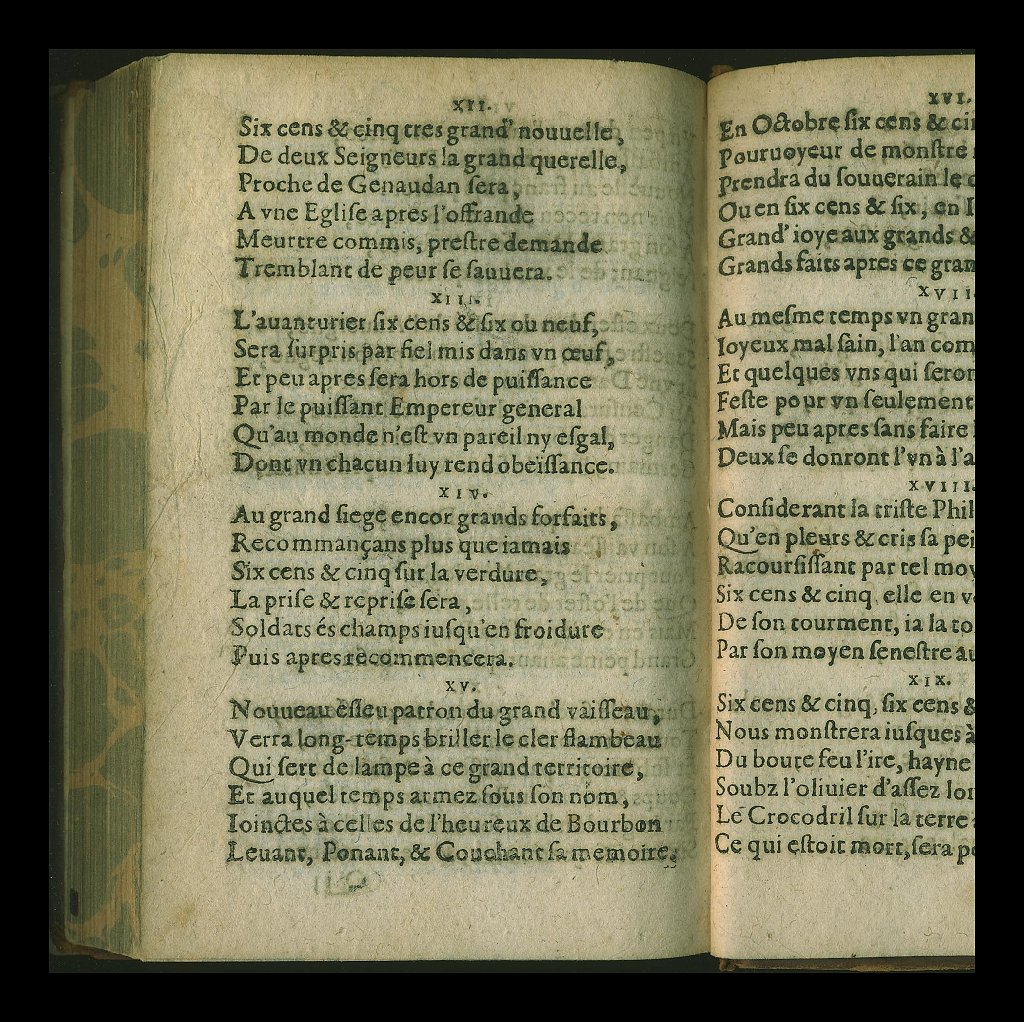 XII.
Six cens & cinq tres grand' nouuelle,
De deux Seigneurs la grand querelle,
Proche de Genaudan sera,
A vne Eglise apres l'offrande
Meurtre commis, prestre demande
Tremblant de peur se sauuera.
XIII.
L'auanturier six cens & six ou neuf,
Sera surpris par fiel mis dans vn œuf,
Et peu apres sera hors de puissance
Par le puissant Empereur general
Qu'au monde n'est vn pareil ny esgal,
Dont vn chacun luy rend obeissance.
XIV.
Au grand siege encor grands forfaits,
Recommançans plus que iamais
Six cens & cinq sur la verdure,
La prise & reprise sera,
Soldats és champs iusqu'en froidure
Puis apres recommencera.
XV.
Nouueau esleu patron du grand vaisseau,
Verra long-temps briller le cler flambeau
Qui sert de lampe à ce grand territoire,
Et auquel temps armez sous son nom,
Ioinctes à celles de l'heureux de Bourbon
Leuant, Ponant, & Couchant sa memoire.
XVI.
En Octobre six cens & cin
Pouruoyeur de monstre
Prendra du souuerain le
Ou en six cens & six, en I
Grand' ioye aux grands &
Grands faits apres ce gran
XVII
Au mesme temps vn gran
Ioyeux mal sain, l'an com
Et quelques vns qui seron
Feste pour vn seulement
Mais peu apres sans faire
Deux se donront l'vn à l'a
XVIII
Considerant la triste Phil
Qu'en pleurs & cris sa pei
Racoursissant par tel moy
Six cens & cinq, elle en v
De son tourment, ia la to
Par son moyen senestre au
XIX.
Six cens & cinq, six cens &
Nous monstrera iusques à
Du boute feu l'ire, hayne
Soubz l'oliuier d'assez lon
Le Crocodril sur la terre
Ce qui estoit mort, sera p